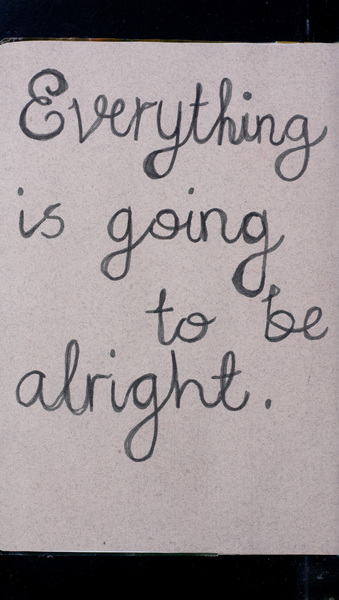 Everything
is going
to be
alright.